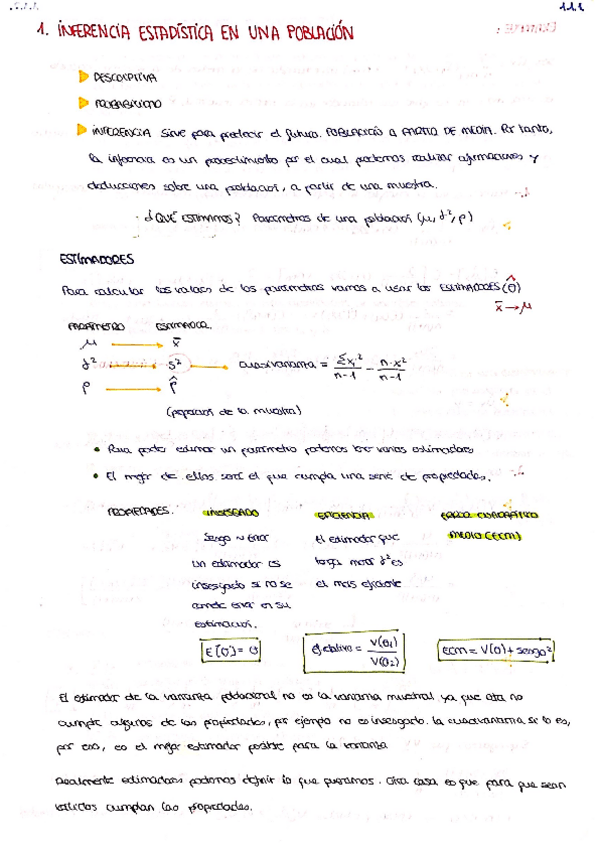 1.1.1
1. INFERENCIA ESTADÍSTICA EN UNA POBLACIÓN
DESCRIPTIVA
PROBABILIDAD
INFERENCIA Sirve para predecir el futuro. POBLACIÓN A PARTIR DE MEDIA. Por tanto,
la inferencia es un procedimiento por el cual podemos realizar afirmaciones y
deducciones sobre una población, a partir de una muestra.
¿QUÉ ESTIMAMOS? Parámetros de una población (μ, σ², ρ)
ESTIMADORES
Para calcular los valores de los parámetros vamos a usar los ESTIMADORES (θ̂)
x̄ → μ
PARÁMETRO ESTIMADOR
μ → x̄
σ² → s² → cuasivarianza = Σxᵢ²/n-1 - n·x²/n-1
ρ → p̂
(proporción de la muestra)
• Para poder estimar un parámetro podemos tener varios estimadores
• El mejor de ellos será el que cumpla una serie de propiedades.
PROPIEDADES. INSESGADO EFICIENCIA ERROR CUADRÁTICO
MEDIO (ECM)
Sesgo → error
un estimador es
insesgado si no se
comete error en su
estimación.
el estimador que
tenga menor σ² es
el más eficiente
E[θ̂] = θ
ef. relativa = V(θ₁)/V(θ₂)
ECM = V(θ) + sesgo²
El estimador de la varianza poblacional no es la varianza muestral ya que esta no
cumple algunas de las propiedades, por ejemplo no es insesgado. la cuasivarianza sí lo es,
por eso, es el mejor estimador posible para la varianza
Realmente estimadores podemos definir lo que queramos. Otra cosa es que para que sean
válidos cumplan las propiedades.